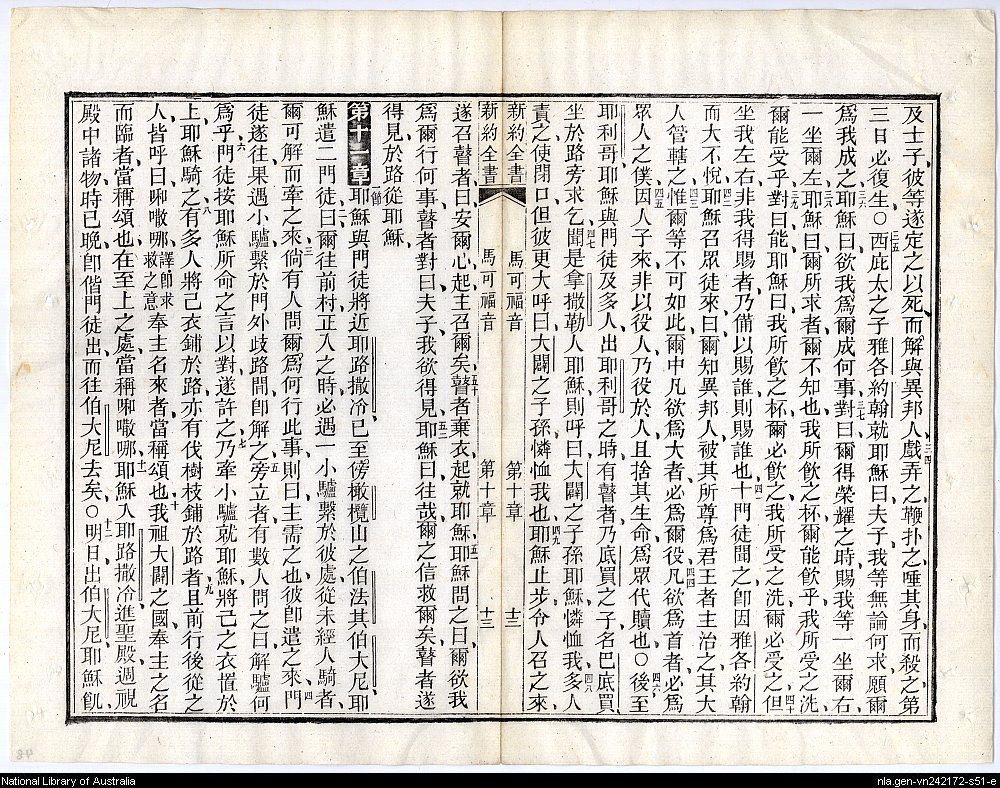 及士子彼等遂定之以死而解與異邦人三四戲弄之鞭扑之唾其身而殺之第
三日必復生〇三五西庇太之子雅各約翰就耶穌曰夫子我等無論何求願爾
爲我成之三六耶穌曰欲我爲爾成何事三七對曰爾得榮耀之時賜我等一坐爾右
一坐爾左三八耶穌曰爾所求者爾不知也我所飲之杯爾能飲乎我所受之洗
爾能受乎三九對曰能耶穌曰我所飲之杯爾必飲之我所受之洗爾必受之四十但
坐我左右非我得賜者乃備以賜誰則賜誰也四一十門徒聞之卽因雅各約翰
而大不悅四二耶穌召眾徒來曰爾知異邦人被其所尊爲君王者主治之其大
人管轄之四三惟爾等不可如此爾中凡欲爲大者必爲爾役四四凡欲爲首者必爲
眾人之僕四五因人子來非以役人乃役於人且捨其生命爲眾代贖也〇四六後至
耶利哥耶穌與門徒及多人出耶利哥之時有瞽者乃底買之子名巴底買
坐於路旁求乞四七聞是拿撒勒人耶穌則呼曰大闢之子孫耶穌憐恤我四八多人
責之使閉口但彼更大呼曰大闢之子孫憐恤我也四九耶穌止步令人召之來
新約全書 馬可福音 第十章 十三
新約全書 馬可福音 第十章 十三
遂召瞽者曰安爾心起主召爾矣五十瞽者棄衣起就耶穌五一耶穌問之曰爾欲我
爲爾行何事瞽者對曰夫子我欲得見五二耶穌曰往哉爾之信救爾矣瞽者遂
得見於路從耶穌
第十一章一節耶穌與門徒將近耶路撒冷已至傍橄欖山之伯法其伯大尼耶
穌遣二門徒曰二爾往前村正入之時必遇一小驢繫於彼處從未經人騎者
爾可解而牽之來三倘有人問爾爲何行此事則曰主需之也彼卽遣之來四門
徒遂往果遇小驢繫於門外歧路間卽解之五旁立者有數人問之曰解驢何
爲乎六門徒按耶穌所命之言以對遂許之七乃牽小驢就耶穌將己之衣置於
上耶穌騎之八有多人將己衣鋪於路亦有伐樹枝鋪於路者九且前行後從之
人皆呼曰㖿㗭哪譯卽求救之意奉主名來者當稱頌也十我祖大闢之國奉主之名
而臨者當稱頌也在至上之處當稱㖿㗭哪十一耶穌入耶路撒冷進聖殿週視
殿中諸物時已晚卽偕門徒出而往伯大尼去矣〇十二明日出伯大尼耶穌飢
National Library of Australia
nla.gen-vn242172-s51-e